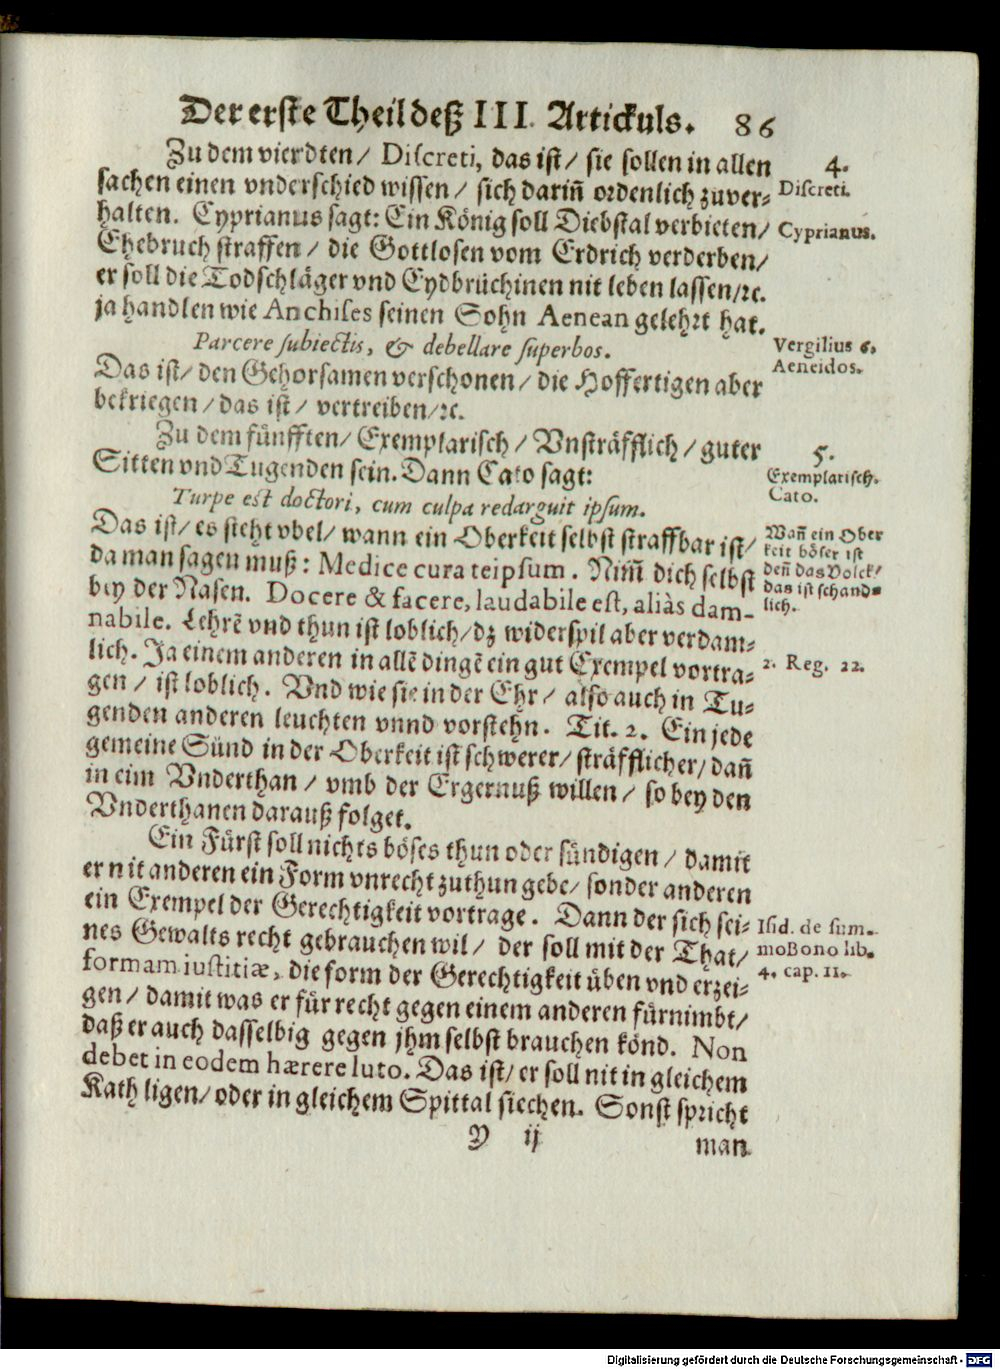 Der erste Theil deß III. Artickuls. 86
Zu dem vierdten/ Discreti, das ist/ sie sollen in allen
sachen einen vnderschied wissen/ sich dariñ ordenlich zuver-
halten. Cyprianus sagt: Ein König soll Diebstal verbieten/
Ehebruch straffen/ die Gottlosen vom Erdrich verderben/
er soll die Todschläger vnd Eydbrüchinen nit leben lassen/ꝛc.
ja handlen wie Anchises seinen Sohn Aenean gelehrt hat.
Parcere subiectis, & debellare superbos.
Das ist/ den Gehorsamen verschonen/ die Hoffertigen aber
bekriegen/ das ist/ vertreiben/ꝛc.
Zu dem fünfften/ Exemplarisch/ Vnsträfflich/ guter
Sitten vnd Tugenden sein. Dann Cato sagt:
Turpe est doctori, cum culpa redarguit ipsum.
Das ist/ es sieht vbel/ wann ein Oberkeit selbst straffbar ist/
da man sagen muß: Medice cura teipsum. Nim̃ dich selbst
bey der Nasen. Docere & facere, laudabile est, aliàs dam-
nabile. Lehrẽ vnd thun ist loblich/ dz widerspil aber verdam-
lich. Ja einem anderen in allẽ dingẽ ein gut Exempel vortra-
gen/ ist loblich. Vnd wie sie in der Ehr/ also auch in Tu-
genden anderen leuchten vnnd vorstehn. Tit. 2. Ein jede
gemeine Sünd in der Oberkeit ist schwerer/ sträfflicher/ dañ
in eim Vnderthan/ vmb der Ergernuß willen/ so bey den
Vnderthanen darauß folget.
Ein Fürst soll nichts böses thun oder sündigen/ damit
er nit anderen ein Form vnrecht zuthun gebe/ sonder anderen
ein Exempel der Gerechtigkeit vortrage. Dann der sich sei-
nes Gewalts recht gebrauchen wil/ der soll mit der That/
formam iustitiæ, die form der Gerechtigkeit üben vnd erzei-
gen/ damit was er für recht gegen einem anderen fürnimbt/
daß er auch dasselbig gegen jhm selbst brauchen könd. Non
debet in eodem hærere luto. Das ist/ er soll nit in gleichem
Kath ligen/ oder in gleichem Spittal siechen. Sonst spricht
Y ij man
4.
Discreti.
Cyprianus.
Vergilius 6.
Aeneidos.
5.
Exemplarisch.
Cato.
Wañ ein Ober
keit böser ist
deñ das Volck/
das ist schand-
lich.
2. Reg. 22.
Isid. de sum-
mo Bono lib.
4. cap. 11.
Digitalisierung gefördert durch die Deutsche Forschungsgemeinschaft - DFG